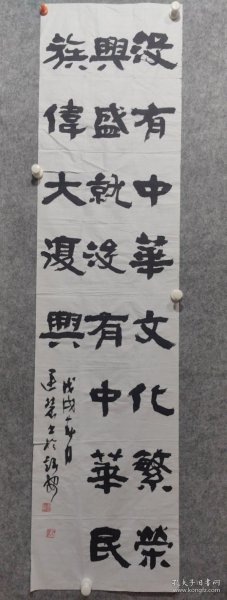 没有中華文化繁榮
興盛就没有中華民
族偉大復興
戊戌年夏月
孔夫子旧书网